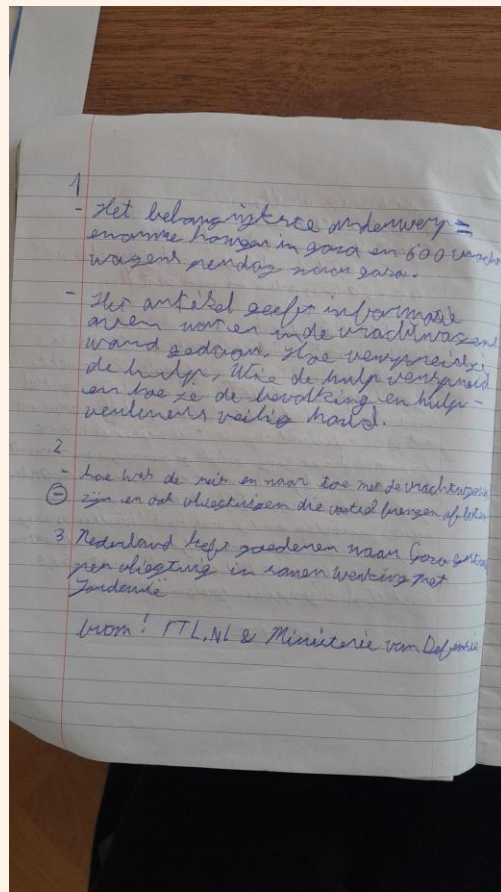 1
- Het belangrijkste onderwerp =
enorme honger in gaza en 600 vracht
wagens per dag naar gaza.
- Het artikel geeft informatie
over wat er in de vrachtwagens
word gedaan. Hoe verspreid
de hulp, Wie de hulp verspreid
en hoe ze de bevolking en hulp-
verleners veilig houd.
2
- hoe was de reis er naar toe met de vrachtwagens
- zijn er ook vliegtuigen die voedsel brengen of boten
3 Nederland heeft goederen naar Gaza
per vliegtuig in samen werking met
Jordanië
bron! RTL.NL & Ministerie van Defensie